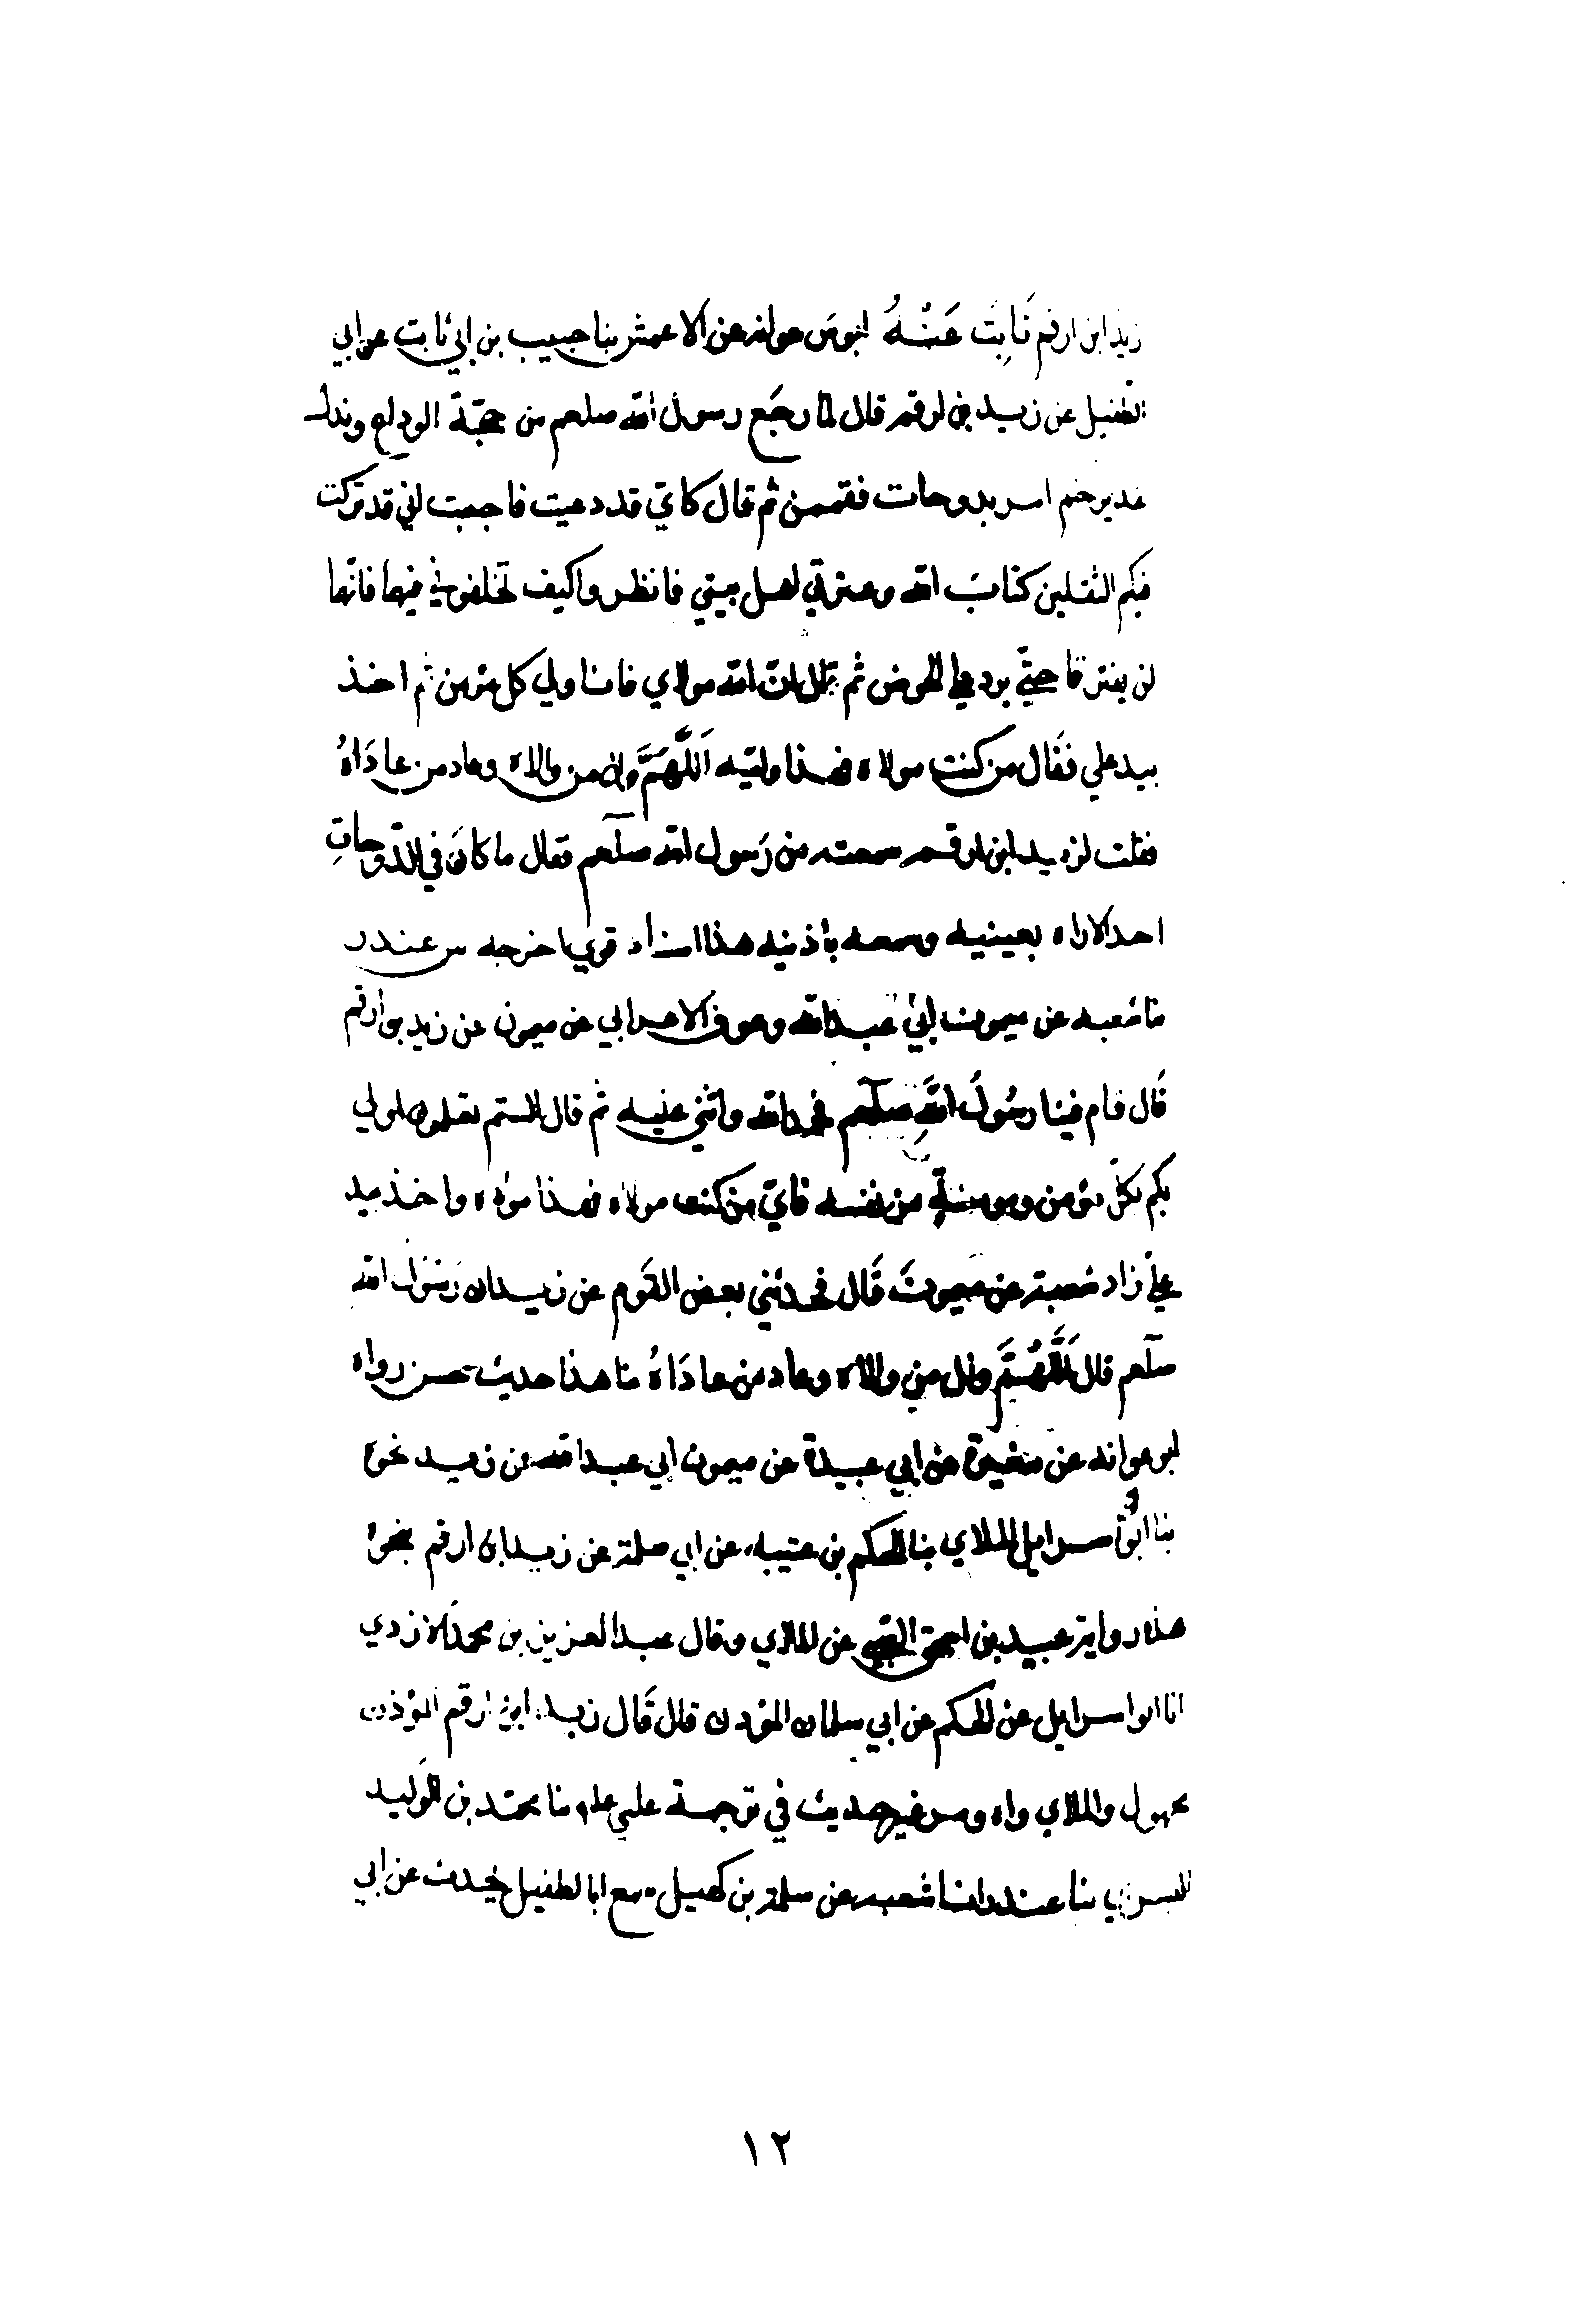 زيد ابن ارقم ثَابِت عَنْهُ ابو عوانه عن الاعمش ثنا حبيب بن ابي ثابت عن ابي
الطفيل عن زيد بن ارقم قال لما رجع رسول الله صلعم من حجة الوداع ونزل
غدير خم امر بدوحات فقممن ثم قال كاني قد دعيت فاجبت اني قد تركت
فيكم الثقلين كتاب الله وعترتي اهل بيتي فانظروا كيف تخلفوني فيهما فانهما
لن يفترقا حتي يردا علي الحوض ثم قال ان الله مولاي فانا ولي كل مؤمن ثم اخذ
بيد علي فقال من كنت مولاه فهذا وليه اَللَّهُمَّ وال من والاه وعاد من عادَاهُ
فقلت لزيد ابن ارقم سمعته من رَسول الله صلعم فقال ما كانَ في الدَّوحاتِ
احد الا راه بعينيه وسمعه باذنيه هذا اسناد قوي اخرجه س غندر
ثنا شعبه عن ميمون ابي عبد الله وعوف الاعرابي عن ميمون عن زيد بن ارقم
قَال قام فينا رسُولُ اللهِ صلعم فحمد الله واثني عليه ثم قال الستم تعلمون اولي
بكم بكلّ مؤمن ومومنة من نفسه فايّ من كنت مولاه فهذا مولاه واخذ بيد
علي زاد شعبة عن ميمون قَال فحدثني بعض القَوم عن زيد ان رَسُول الله
صلعم قال اللَّهُمَّ وال من والاه وعاد من عادَاهُ ثنا هذا حديث حسن رواه
ابو عوانه عن مغيرة عن ابي عبيدة عن ميمون ابي عبد الله عن زيد نحوه
ثنا ابو اسرايل الملاي ثنا الحكم بن عتيبه عن ابي سلمة عن زيد ابن ارقم بنحوه
هذه رواية عبيد بن اسحق عن الملاي وقال عبد العزيز بن محمد الازدي
انا ابو اسرايل عن الحكم عن ابي سلمان المؤدن قال قَال زيد ابن ارقم المؤذن
مجهول والملاي واه ومر حديث في ترجمة علي ثنا محمّد بن الوَليد
البسري ثنا غندر انا شعبه عن سلمة بن كهيل سمع ابا الطفيل يحدث عن ابي
١٢